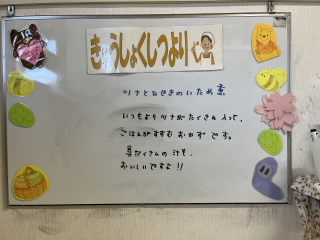 きゅうしょくしつより
ツナとひじきのいため煮
いつもよりツナがたくさん入って、
ごはんがすすむおかずです。
具だくさんの汁も、
おいしいですよ!!